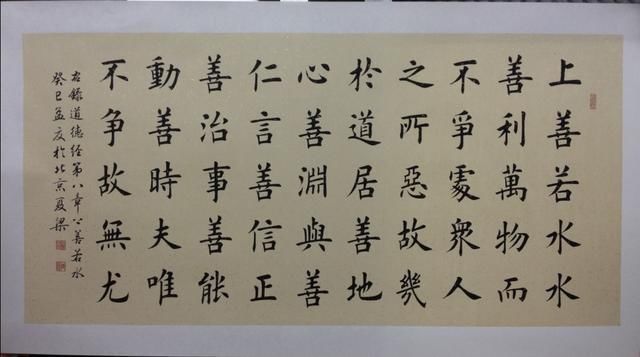 上善若水水
善利萬物而
不爭處衆人
之所惡故幾
於道居善地
心善淵與善
仁言善信正
善治事善能
動善時夫唯
不争故無尤
右錄道德經第八章上善若水
癸巳孟夏於北京夏梁